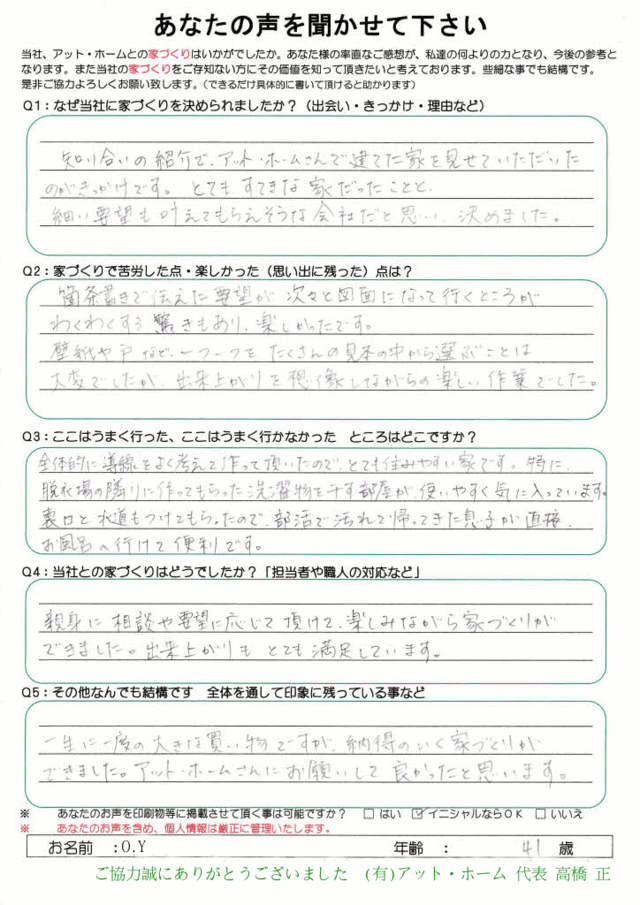 あなたの声を聞かせて下さい
当社、アット・ホームとの家づくりはいかがでしたか。あなた様の率直なご感想が、私達の何よりの力となり、今後の参考と
なります。また当社の家づくりをご存知ない方にその価値を知って頂きたいと考えております。些細な事でも結構です。
是非ご協力よろしくお願い致します。（できるだけ具体的に書いて頂けると助かります）
Q1：なぜ当社に家づくりを決められましたか？（出会い・きっかけ・理由など）
知り合いの紹介で、アット・ホームさんで建てた家を見せていただいた
のがきっかけです。とてもすてきな家だったことと、
細い要望も叶えてもらえそうな会社だと思い、決めました。
Q2：家づくりで苦労した点・楽しかった（思い出に残った）点は？
箇条書きで伝えた要望が次々と図面になって行くところが
わくわくする驚きもあり、楽しかったです。
壁紙や戸など、一つ一つをたくさんの見本の中から選ぶことは
大変でしたが、出来上がりを想像しながらの楽しい作業でした。
Q3：ここはうまく行った、ここはうまく行かなかった　ところはどこですか？
全体的に導線をよく考えて作って頂いたので、とても住みやすい家です。特に、
脱衣場の隣りに作ってもらった洗濯物を干す部屋が、使いやすく気に入っています。
裏口と水道もつけてもらったので、部活で汚れて帰ってきた息子が直接、
お風呂へ行けて便利です。
Q4：当社との家づくりはどうでしたか？「担当者や職人の対応など」
親身に相談や要望に応じて頂けて、楽しみながら家づくりが
できました。出来上がりもとても満足しています。
Q5：その他なんでも結構です　全体を通して印象に残っている事など
一生に一度の大きな買い物ですが、納得のいく家づくりが
できました。アット・ホームさんにお願いして良かったと思います。
※　あなたのお声を印刷物等に掲載させて頂く事は可能ですか？　□ はい　☑ イニシャルならＯＫ　□ いいえ
※　あなたのお声を含め、個人情報は厳正に管理いたします。
お名前　：O.Y　年齢　：　41　歳
ご協力誠にありがとうございました　(有)アット・ホーム 代表 高橋 正